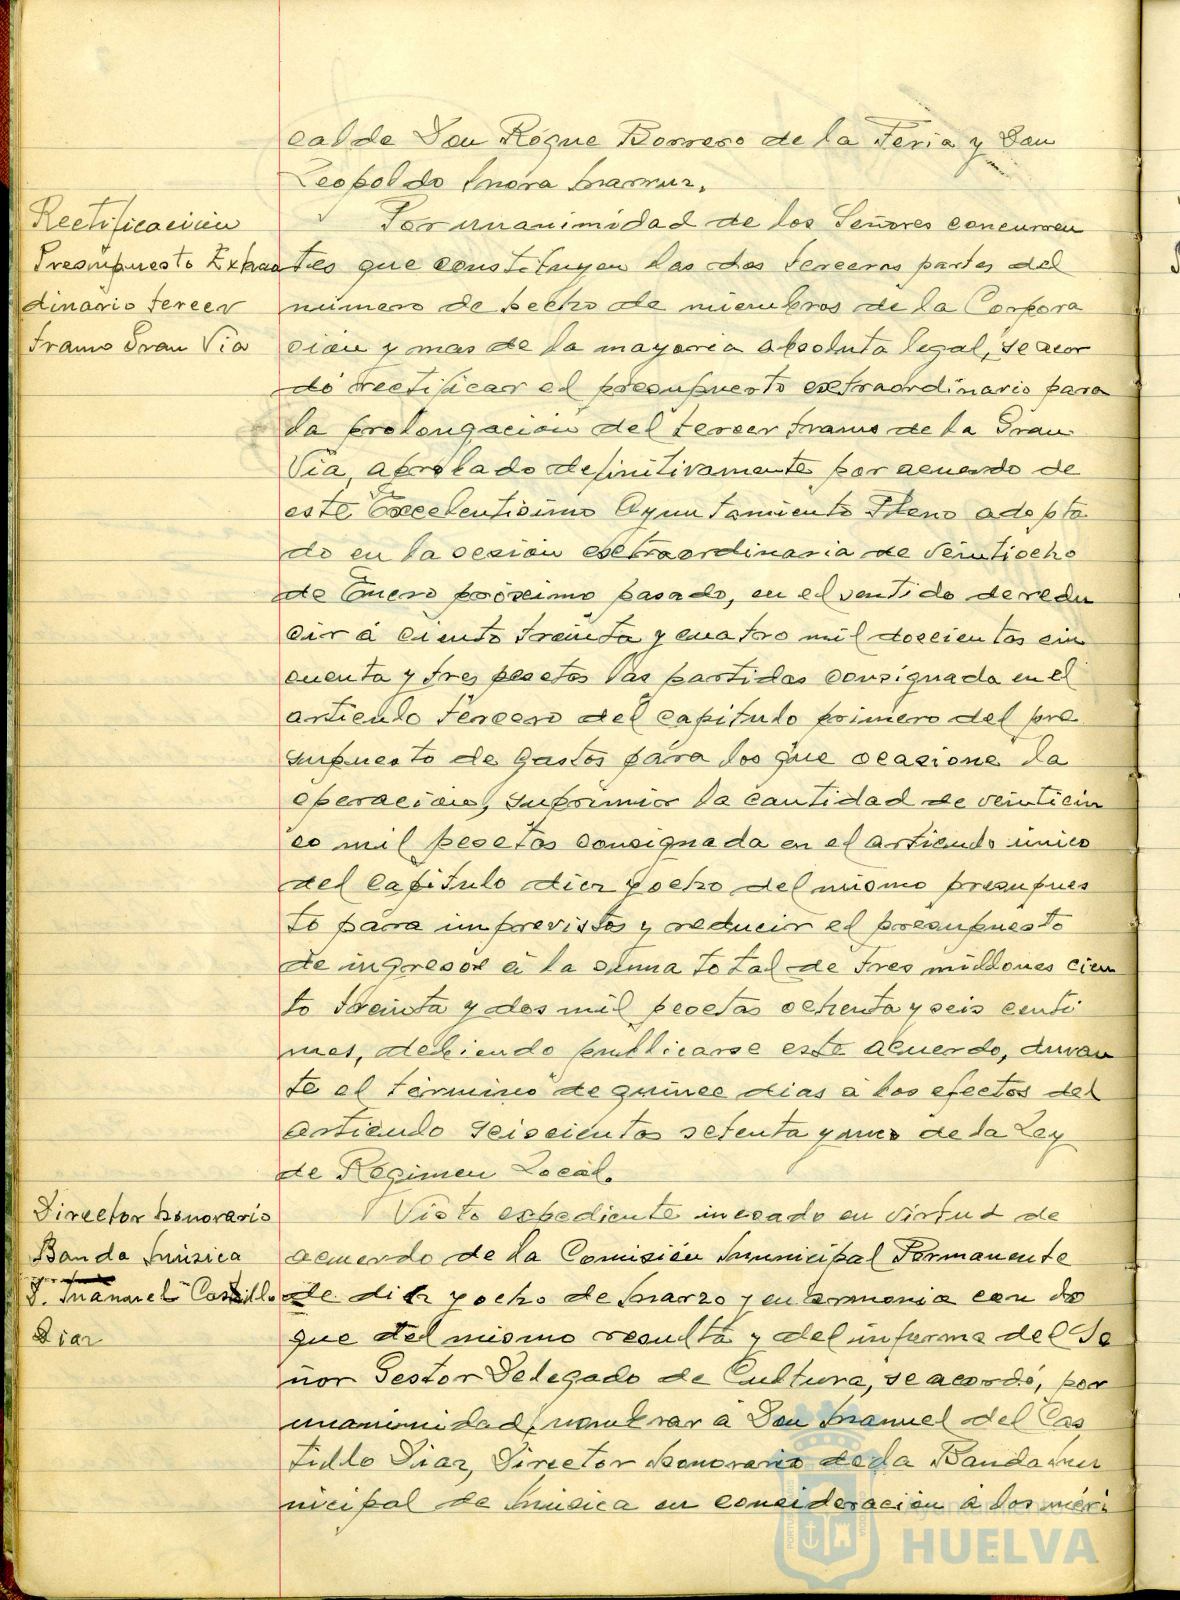 calde Don Roque Borrero de la Feria y Don
Leopoldo Mora
Rectificación
Presupuesto Extraor
dinario tercer
tramo Gran Via
Por unanimidad de los Señores concurren
tes que constituyen las dos terceras partes del
número de hecho de miembros de la Corpora
ción y mas de la mayoria absoluta legal, se acor
dó rectificar el presupuesto extraordinario para
la prolongación del tercer tramo de la Gran
Via, aprobado definitivamente por acuerdo de
este Excelentisimo Ayuntamiento Pleno adopta
do en la sesión extraordinaria de veintiocho
de Enero próximo pasado, en el sentido de redu
cir á ciento treinta y cuatro mil doscientas cin
cuenta y tres pesetas las partidas consignada en el
articulo tercero del capitulo primero del pre
supuesto de gastos para los que ocasione la
operación, suprimir la cantidad de veinticin
co mil pesetas consignada en el articulo único
del capitulo diez y ocho del mismo presupues
to para imprevistos y reducir el presupuesto
de ingresos á la suma total de tres millones cien
to treinta y dos mil pesetas ochenta y seis centi
mos, debiendo publicarse este acuerdo, duran
te el término de quince dias á los efectos del
articulo seiscientos setenta y uno de la Ley
de Régimen Local.
Director honorario
Banda Música
D. Manuel Castillo
Diaz
Visto expediente incoado en virtud de
acuerdo de la Comisión Municipal Permanente
de diez y ocho de Marzo y en armonia con lo
que del mismo resulta y del informe del Se
ñor Gestor Delegado de Cultura, se acordó, por
unanimidad, nombrar á Don Manuel del Cas
tillo Diaz, Director honorario de la Banda Mu
nicipal de Música en consideración á los méri
Ayuntamiento de
HUELVA